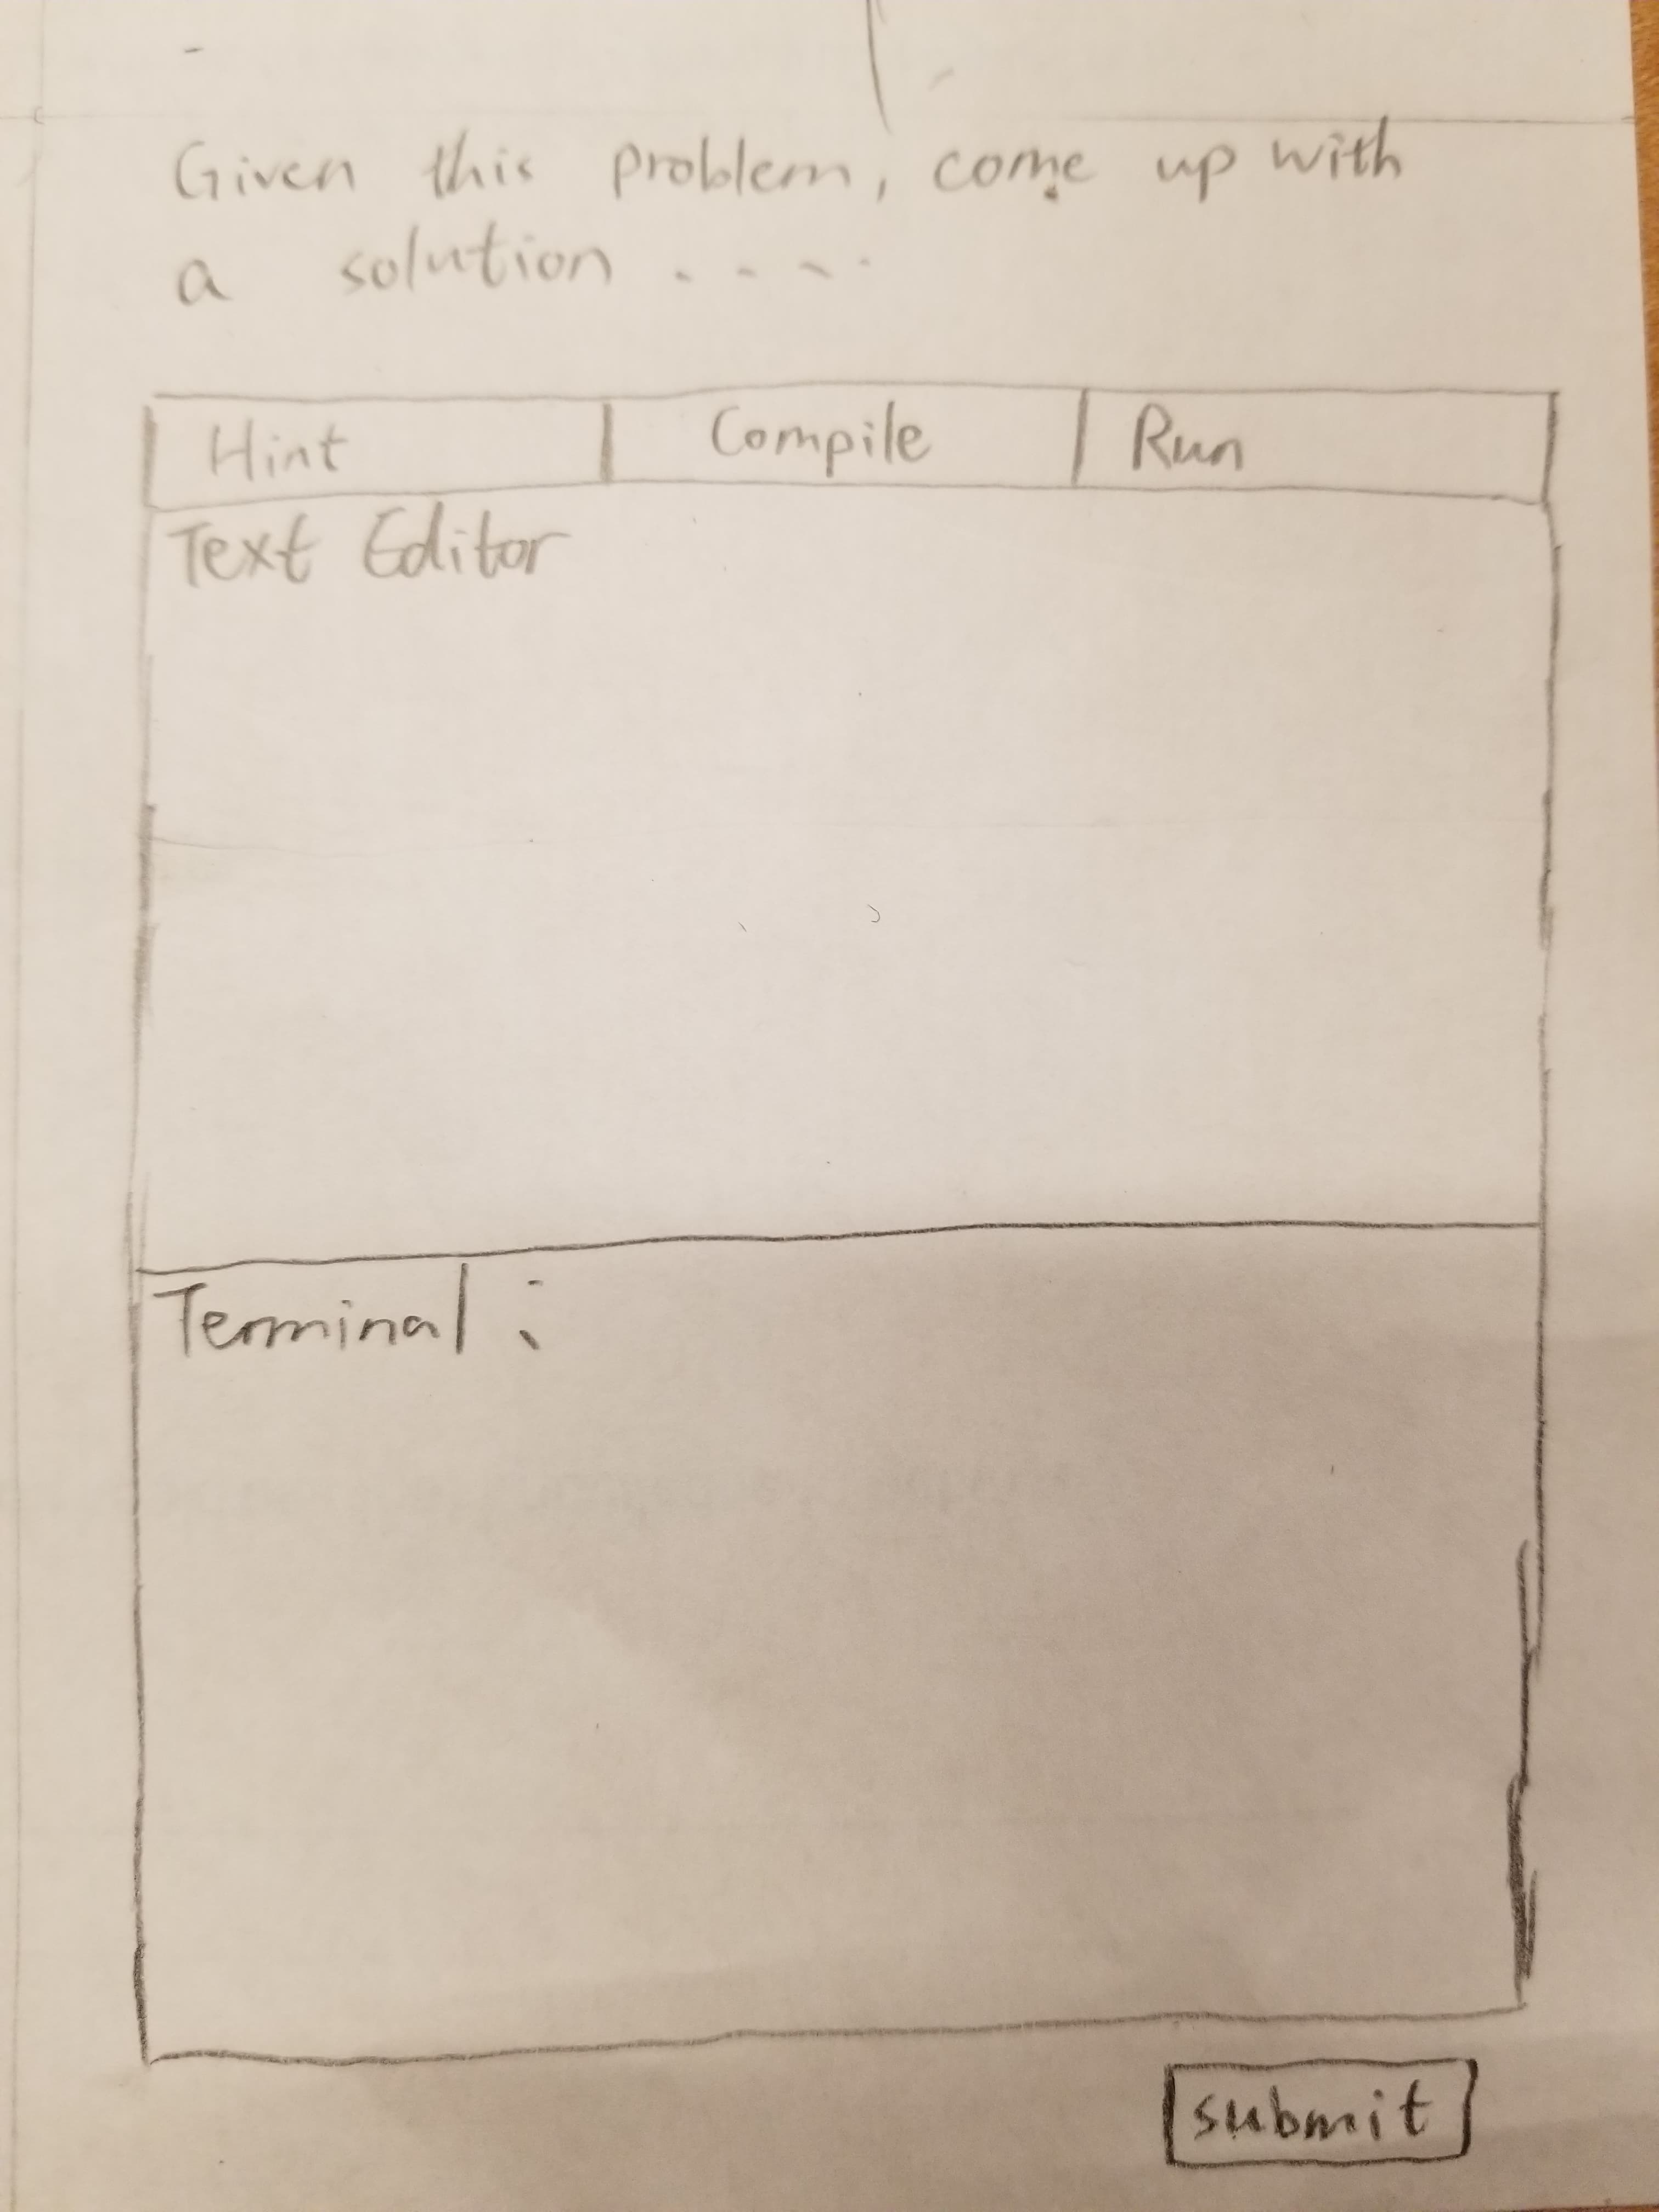 Given this problem, come up with
a solution ....
Hint Compile Run
Text Editor
Terminal :
submit